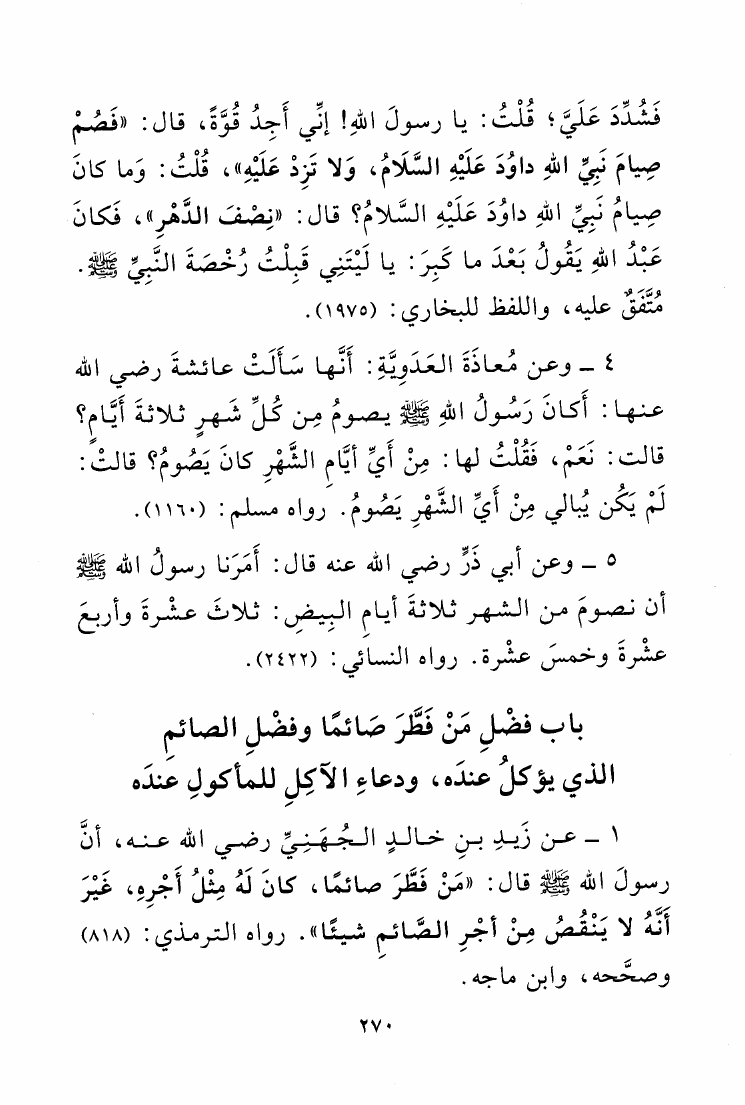 فَشُدِّدَ عَلَيَّ؛ قُلْتُ: يا رسولَ اللهِ! إنِّي أَجِدُ قُوَّةً، قال: «فَصُمْ
صِيامَ نَبِيِّ اللهِ داوُدَ عَلَيْهِ السَّلَامُ، وَلا تَزِدْ عَلَيْهِ»، قُلْتُ: وَما كانَ
صِيامُ نَبِيِّ اللهِ داوُدَ عَلَيْهِ السَّلامُ؟ قال: «نِصْفَ الدَّهْرِ»، فَكانَ
عَبْدُ اللهِ يَقُولُ بَعْدَ ما كَبِرَ: يا لَيْتَنِي قَبِلْتُ رُخْصَةَ النَّبِيِّ ﷺ.
مُتَّفَقٌ عليه، واللفظ للبخاري: (١٩٧٥).
٤ ـ وعن مُعاذَةَ العَدَوِيَّةِ: أَنَّها سَأَلَتْ عائشةَ رضي الله
عنها: أَكانَ رَسُولُ اللهِ ﷺ يصومُ مِن كُلِّ شَهرٍ ثلاثةَ أَيَّامٍ؟
قالت: نَعَمْ، فَقُلْتُ لها: مِنْ أَيِّ أيَّامِ الشَّهْرِ كانَ يَصُومُ؟ قالتْ:
لَمْ يَكُن يُبالي مِنْ أَيِّ الشَّهْرِ يَصُومُ. رواه مسلم: (١١٦٠).
٥ ـ وعن أبي ذَرٍّ رضي الله عنه قال: أَمَرَنا رسولُ الله ﷺ
أن نصومَ من الشهر ثلاثةَ أيامِ البِيضِ: ثلاثَ عشْرةَ وأربعَ
عشْرةَ وخمسَ عشْرة. رواه النسائي: (٢٤٢٢).
باب فضْلِ مَنْ فَطَّرَ صَائمًا وفضْلِ الصائمِ
الذي يؤكلُ عندَه، ودعاءِ الآكِلِ للمأكولِ عندَه
١ ـ عن زَيدِ بنِ خالدٍ الجُهَنِيِّ رضي الله عنه، أنَّ
رسولَ الله ﷺ قال: «مَنْ فَطَّرَ صائمًا، كانَ لَهُ مِثْلُ أَجْرِهِ، غَيْرَ
أَنَّهُ لا يَنْقُصُ مِنْ أجْرِ الصَّائمِ شيئًا». رواه الترمذي: (٨١٨)
وصحَّحه، وابن ماجه.
٢٧٠